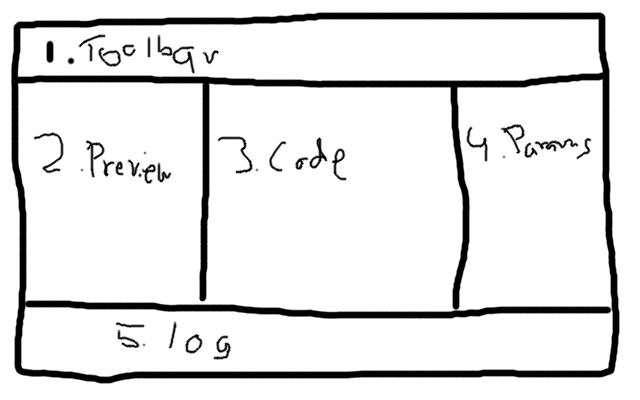 1. Toolbar
2. Preview
3. Code
4. Params
5. log